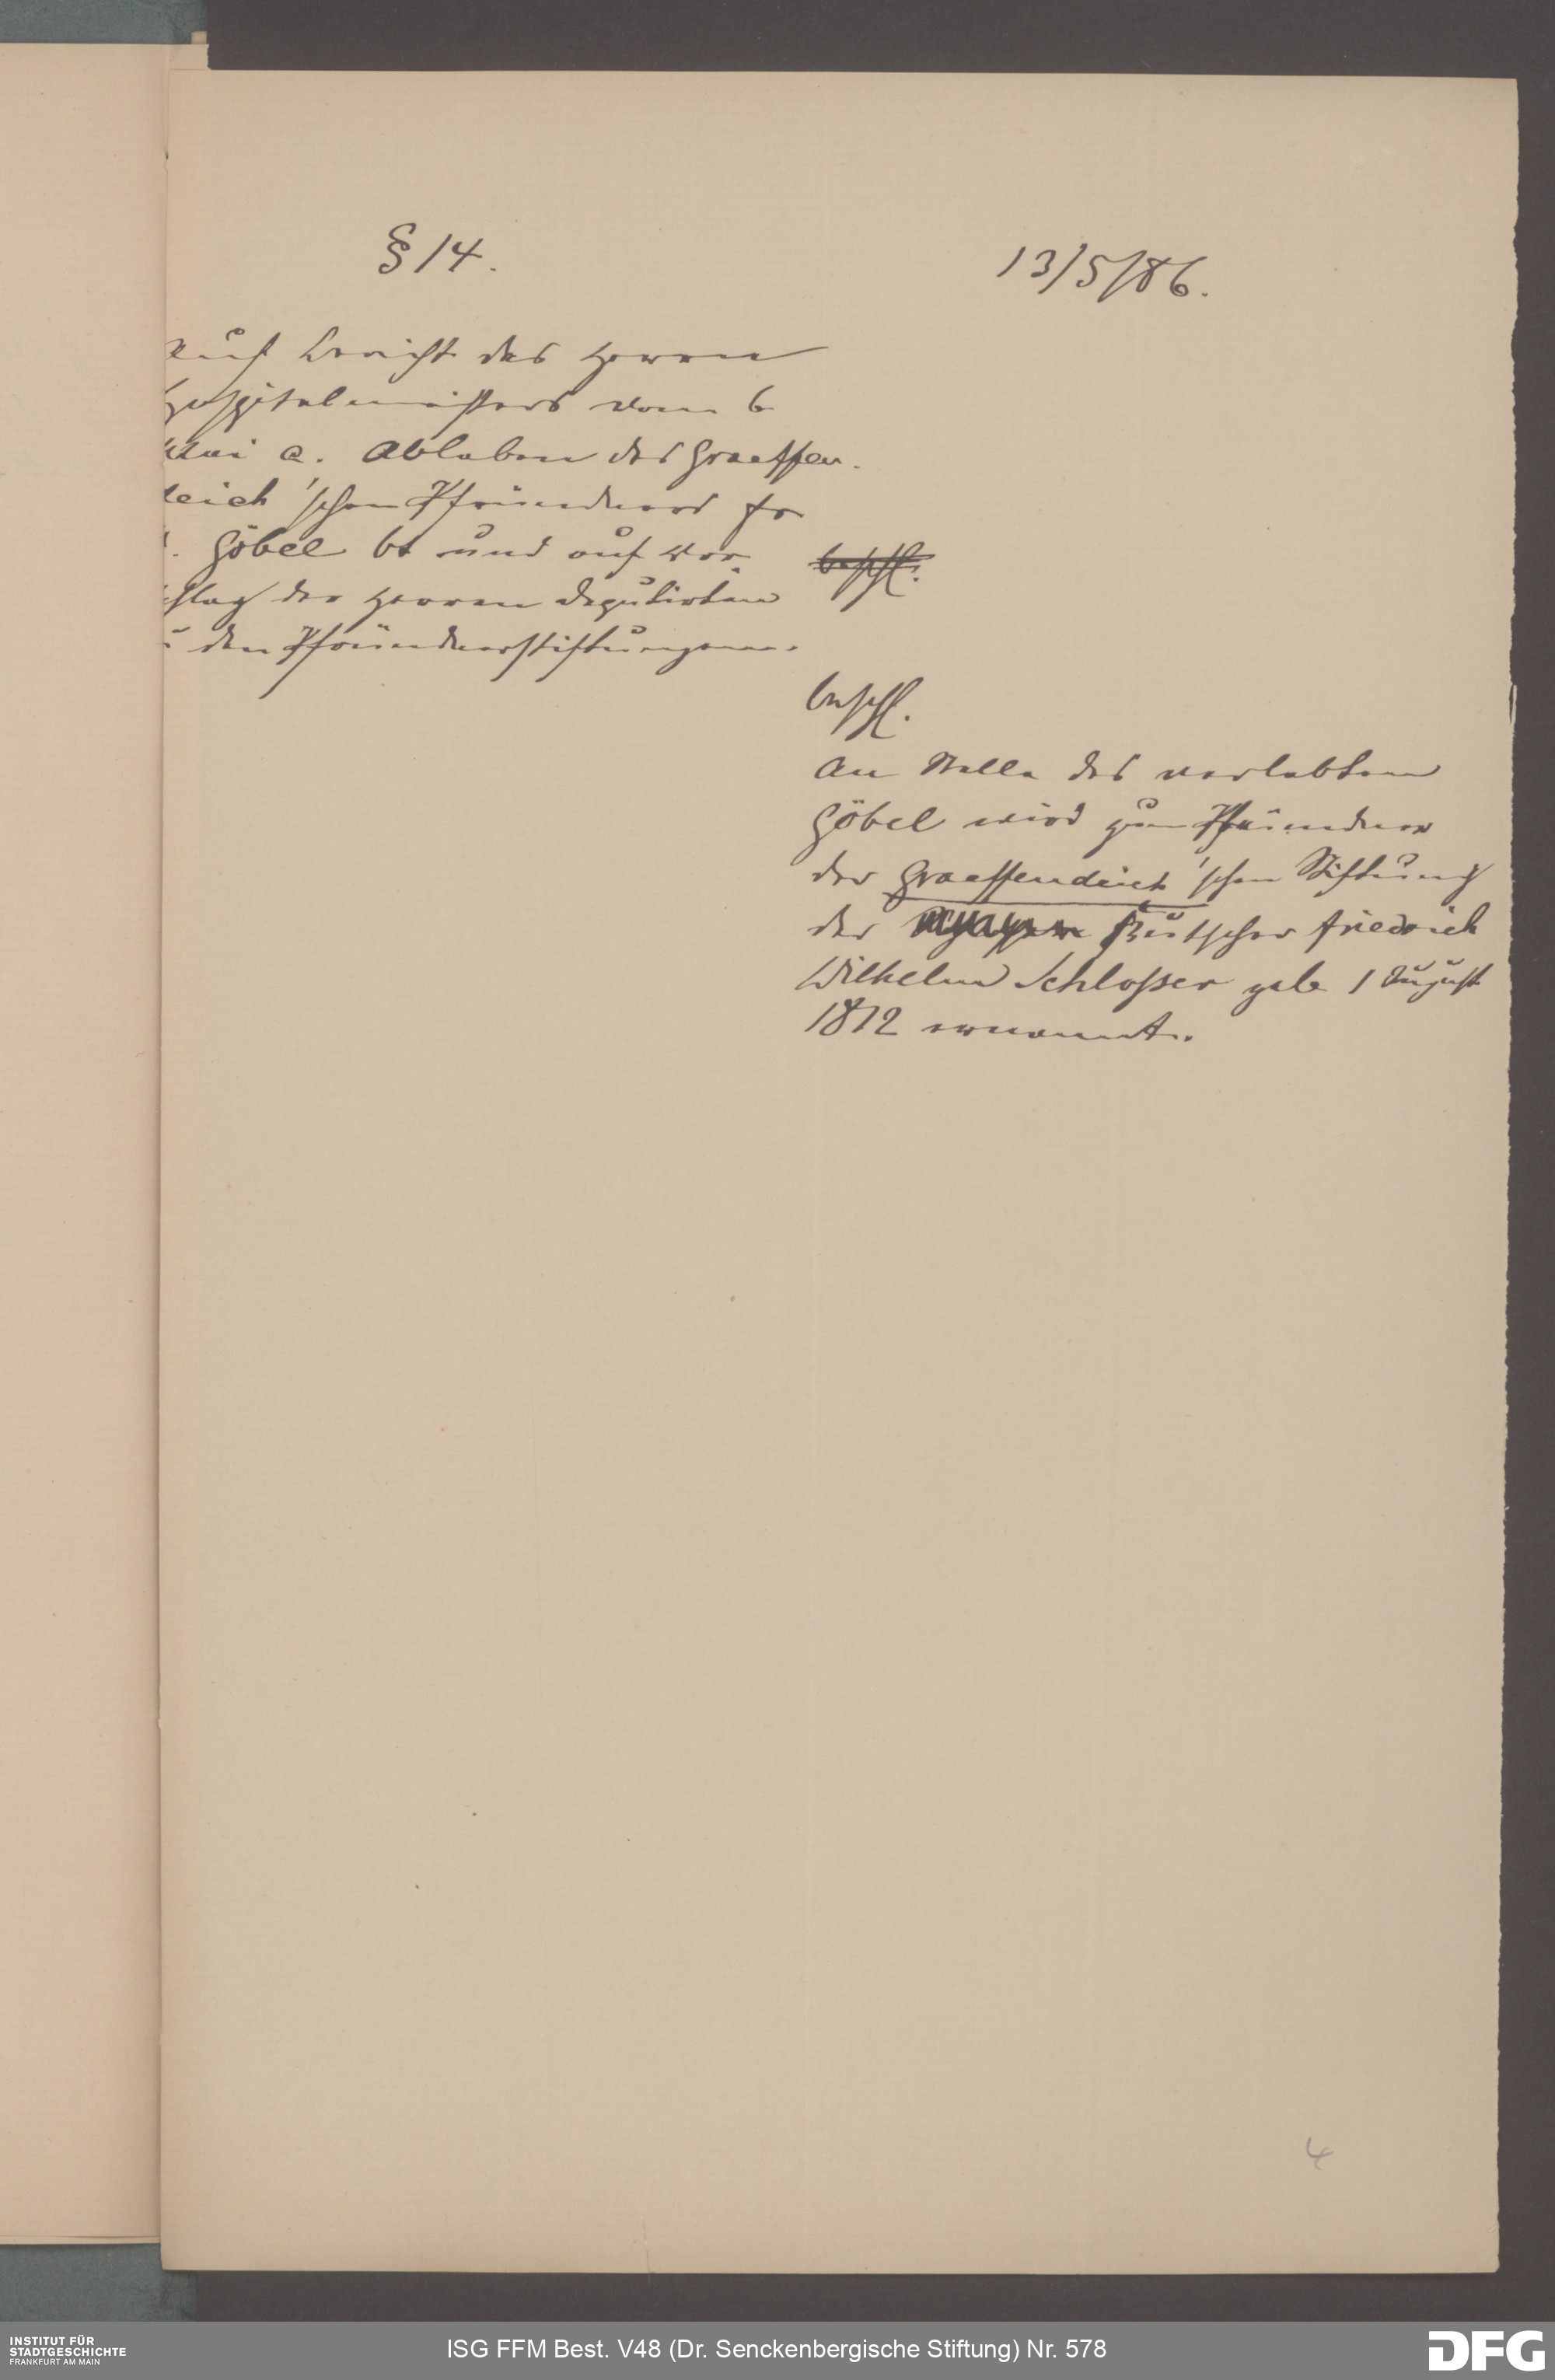 § 14.
13/5/86.
Auf Bericht des Herrn
Hospitalmeisters vom 6
Mai a. Ableben des Graeffen-
deich'schen Pfründners Fr
Göbel bt und auf Vor-
schlag der Herren Deputirten
zu den Pfründnerstiftungen.
beschl.
beschl.
An Stelle des verlebten
Göbel wird zum Pfründner
der Graeffendeich'schen Stiftung
der Kutscher Friedrich
Wilhelm Schlosser geb. 1 August
1812 ernannt.
4
INSTITUT FÜR
STADTGESCHICHTE
FRANKFURT AM MAIN
ISG FFM Best. V48 (Dr. Senckenbergische Stiftung) Nr. 578
DFG